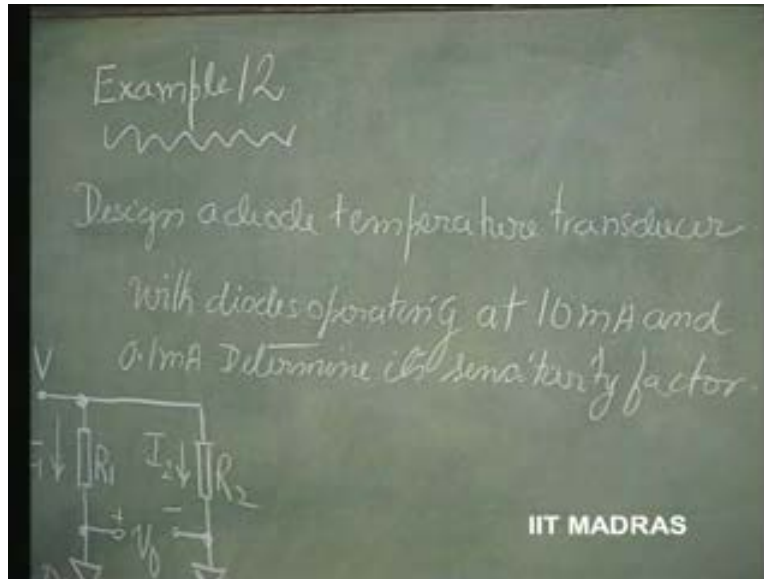 Example 12
Design a diode temperature transducer
with diodes operating at 10mA and
0.1mA Determine its sensitivity factor.
V
I1 R1 I2 R2
+ V0 -
IIT MADRAS